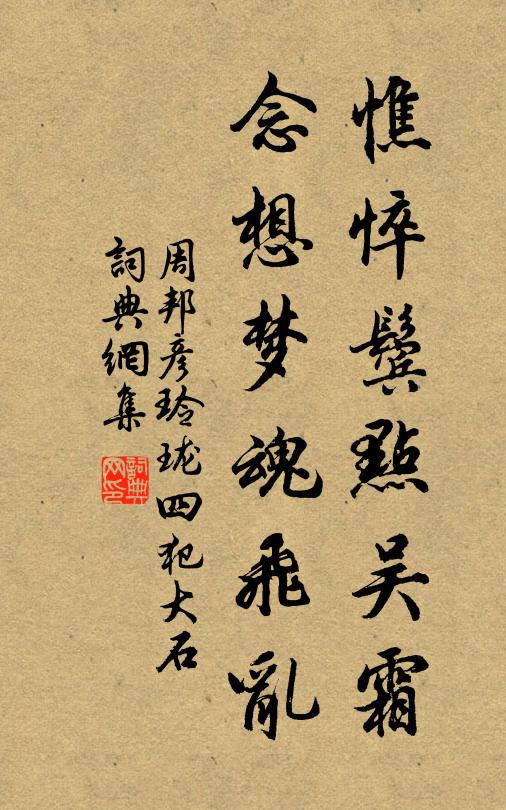 憔悴鬓點吴霜
念想梦魂飛亂
周邦彦玲珑四犯大石
詞典網集
詞典网印